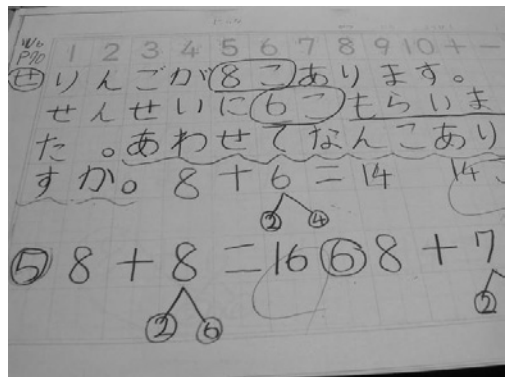 P70 1 2 3 4 5 6 7 8 9 10 + −
せ りんごが8こあります。
せんせいに6こもらいま
た。あわせてなんこあり
すか。 8+6=14 14
② ④
⑤ 8+8=16 ⑥ 8+7
② ⑥ ②